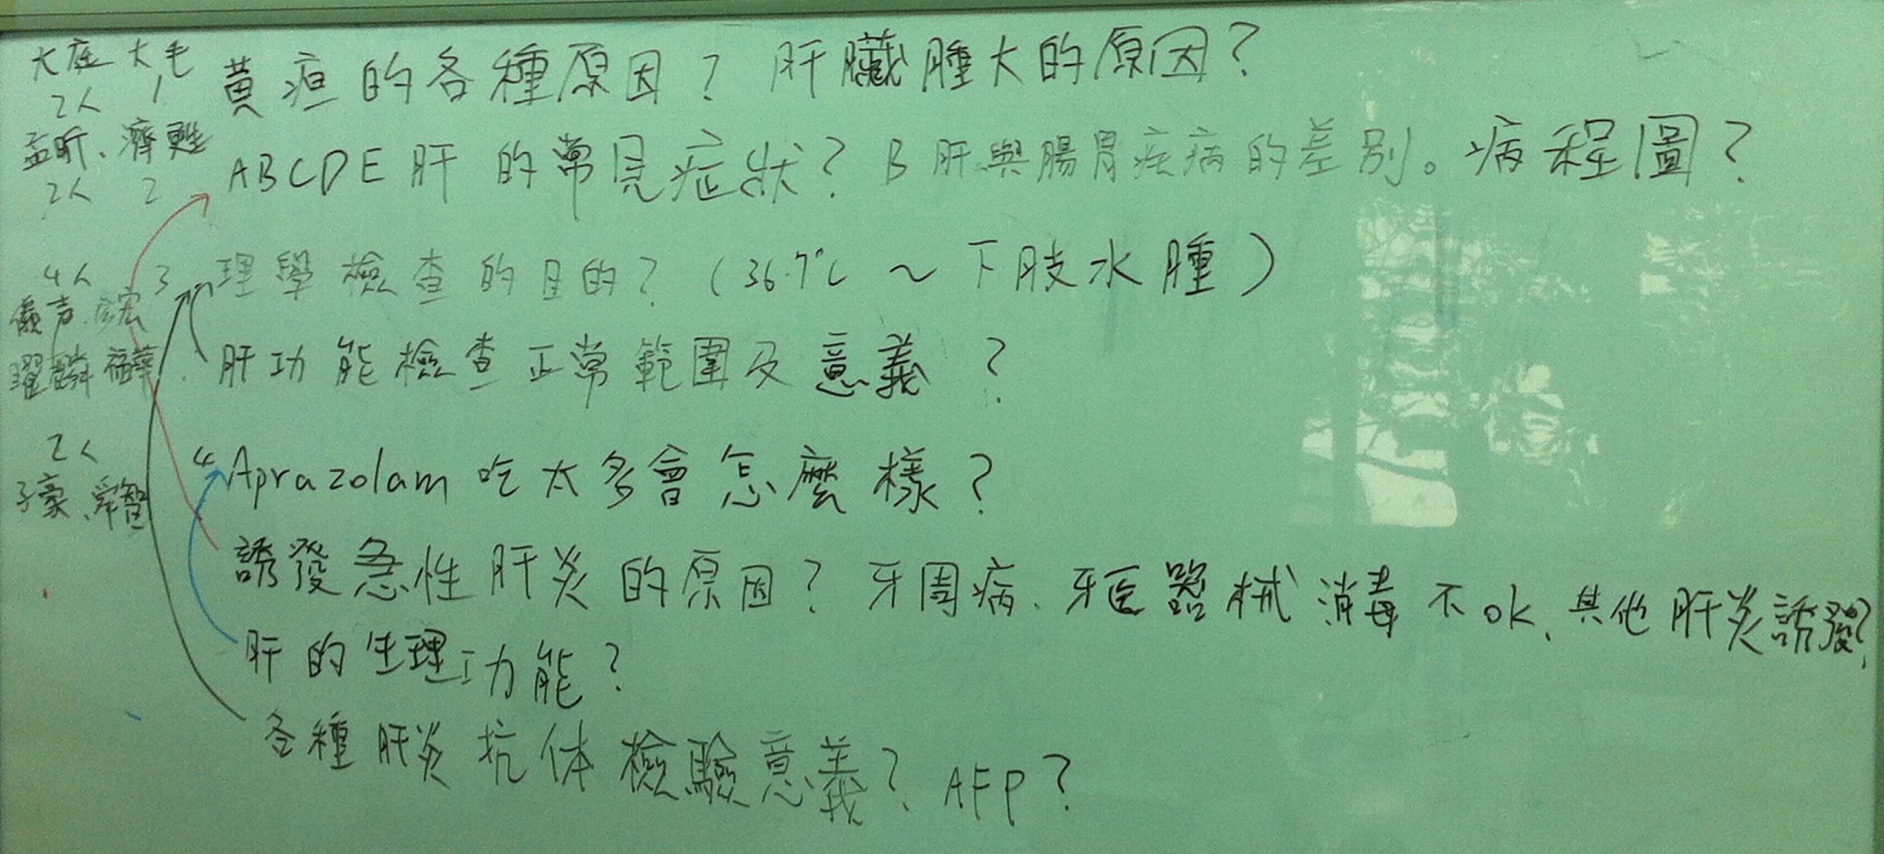 大庭 大毛
2人 1 黃疸的各種原因? 肝臟腫大的原因?
孟昕、濟甦
2人 2 ABCDE肝的常見症狀? B肝與腸胃疾病的差別。病程圖?
4人 3 理學檢查的目的? (36.7°C ~ 下肢水腫)
肝功能檢查正常範圍及意義?
2人 4 Aprazolam吃太多會怎麼樣?
子豪、舜智
誘發急性肝炎的原因? 牙周病、牙医器械消毒不ok、其他肝炎誘發?
肝的生理功能?
各種肝炎抗体檢驗意義? AFP?